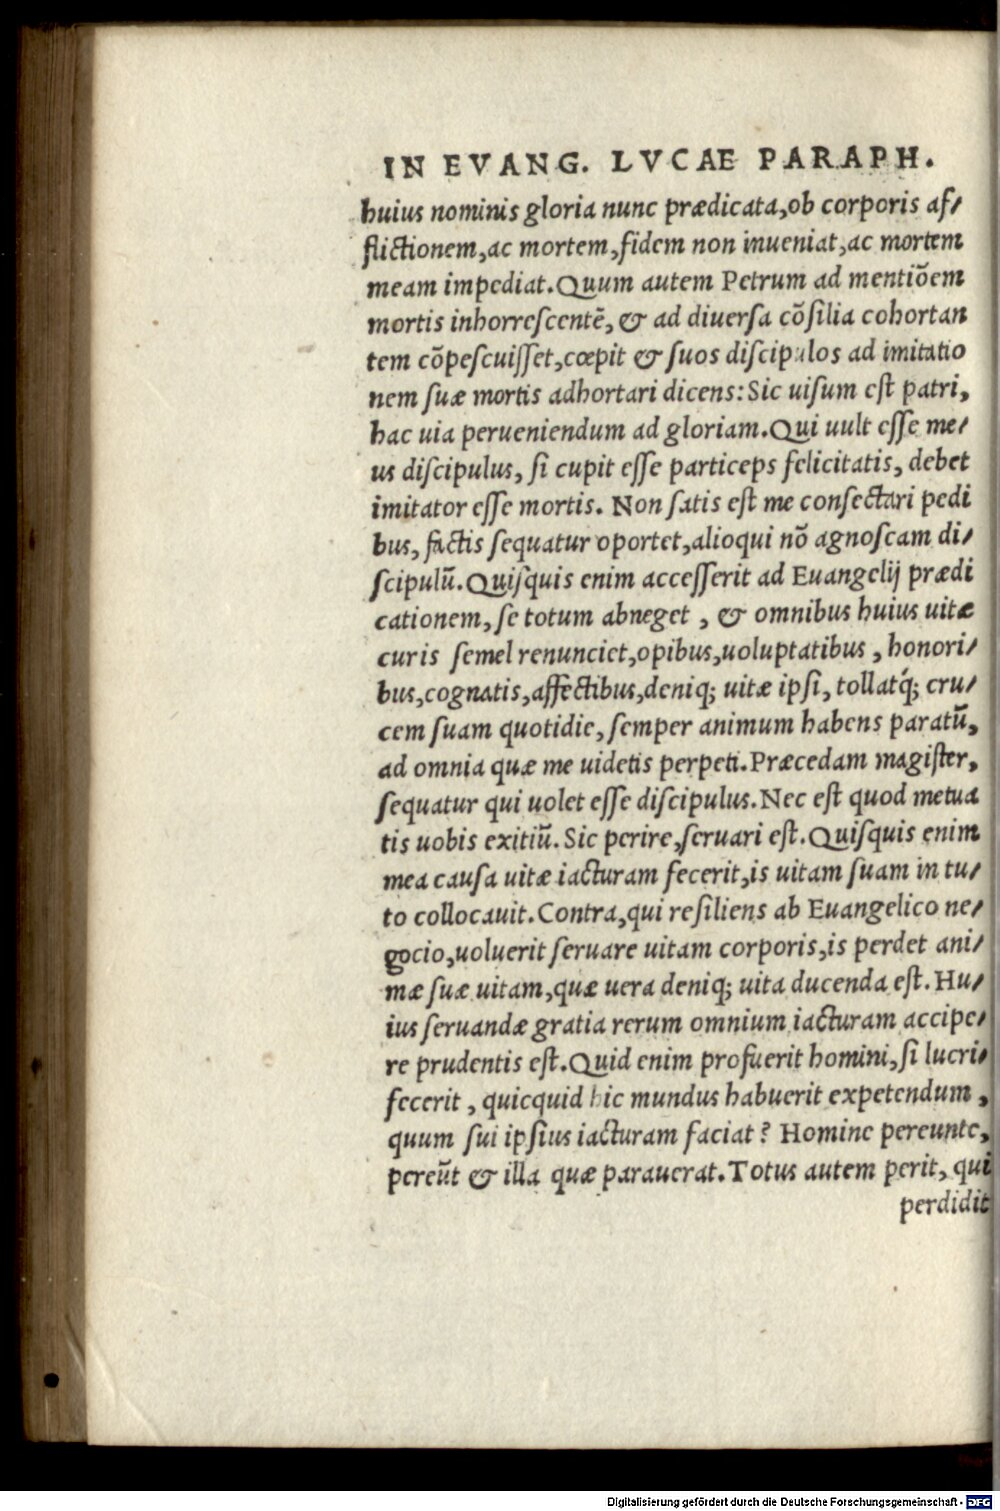 IN EVANG. LVCAE PARAPH.
huius nominis gloria nunc prædicata,ob corporis af⸗
flictionem,ac mortem,fidem non inueniat,ac mortem
meam impediat.Quum autem Petrum ad mentiõem
mortis inhorrescentẽ, & ad diuersa cõsilia cohortan
tem cõpescuisset,cœpit & suos discipulos ad imitatio
nem suæ mortis adhortari dicens:Sic uisum est patri,
hac uia perueniendum ad gloriam.Qui uult esse me⸗
us discipulus, si cupit esse particeps felicitatis, debet
imitator esse mortis. Non satis est me consectari pedi
bus, factis sequatur oportet,alioqui nõ agnoscam di⸗
scipulũ.Quisquis enim accesserit ad Euangelij prædi
cationem, se totum abneget , & omnibus huius uitæ
curis semel renunciet,opibus,uoluptatibus , honori⸗
bus,cognatis,affectibus,deniq; uitæ ipsi, tollatq́; cru⸗
cem suam quotidie, semper animum habens paratũ,
ad omnia quæ me uidetis perpeti.Præcedam magister,
sequatur qui uolet esse discipulus.Nec est quod metua
tis uobis exitiũ. Sic perire,seruari est.Quisquis enim
mea causa uitæ iacturam fecerit,is uitam suam in tu⸗
to collocauit.Contra,qui resiliens ab Euangelico ne⸗
gocio,uoluerit seruare uitam corporis,is perdet ani⸗
mæ suæ uitam,quæ uera deniq; uita ducenda est. Hu⸗
ius seruandæ gratia rerum omnium iacturam accipe⸗
re prudentis est.Quid enim profuerit homini,si lucri⸗
fecerit , quicquid hic mundus habuerit expetendum ,
quum sui ipsius iacturam faciat? Homine pereunte,
pereũt & illa quæ parauerat.Totus autem perit, qui
perdidit
Digitalisierung gefördert durch die Deutsche Forschungsgemeinschaft - DFG